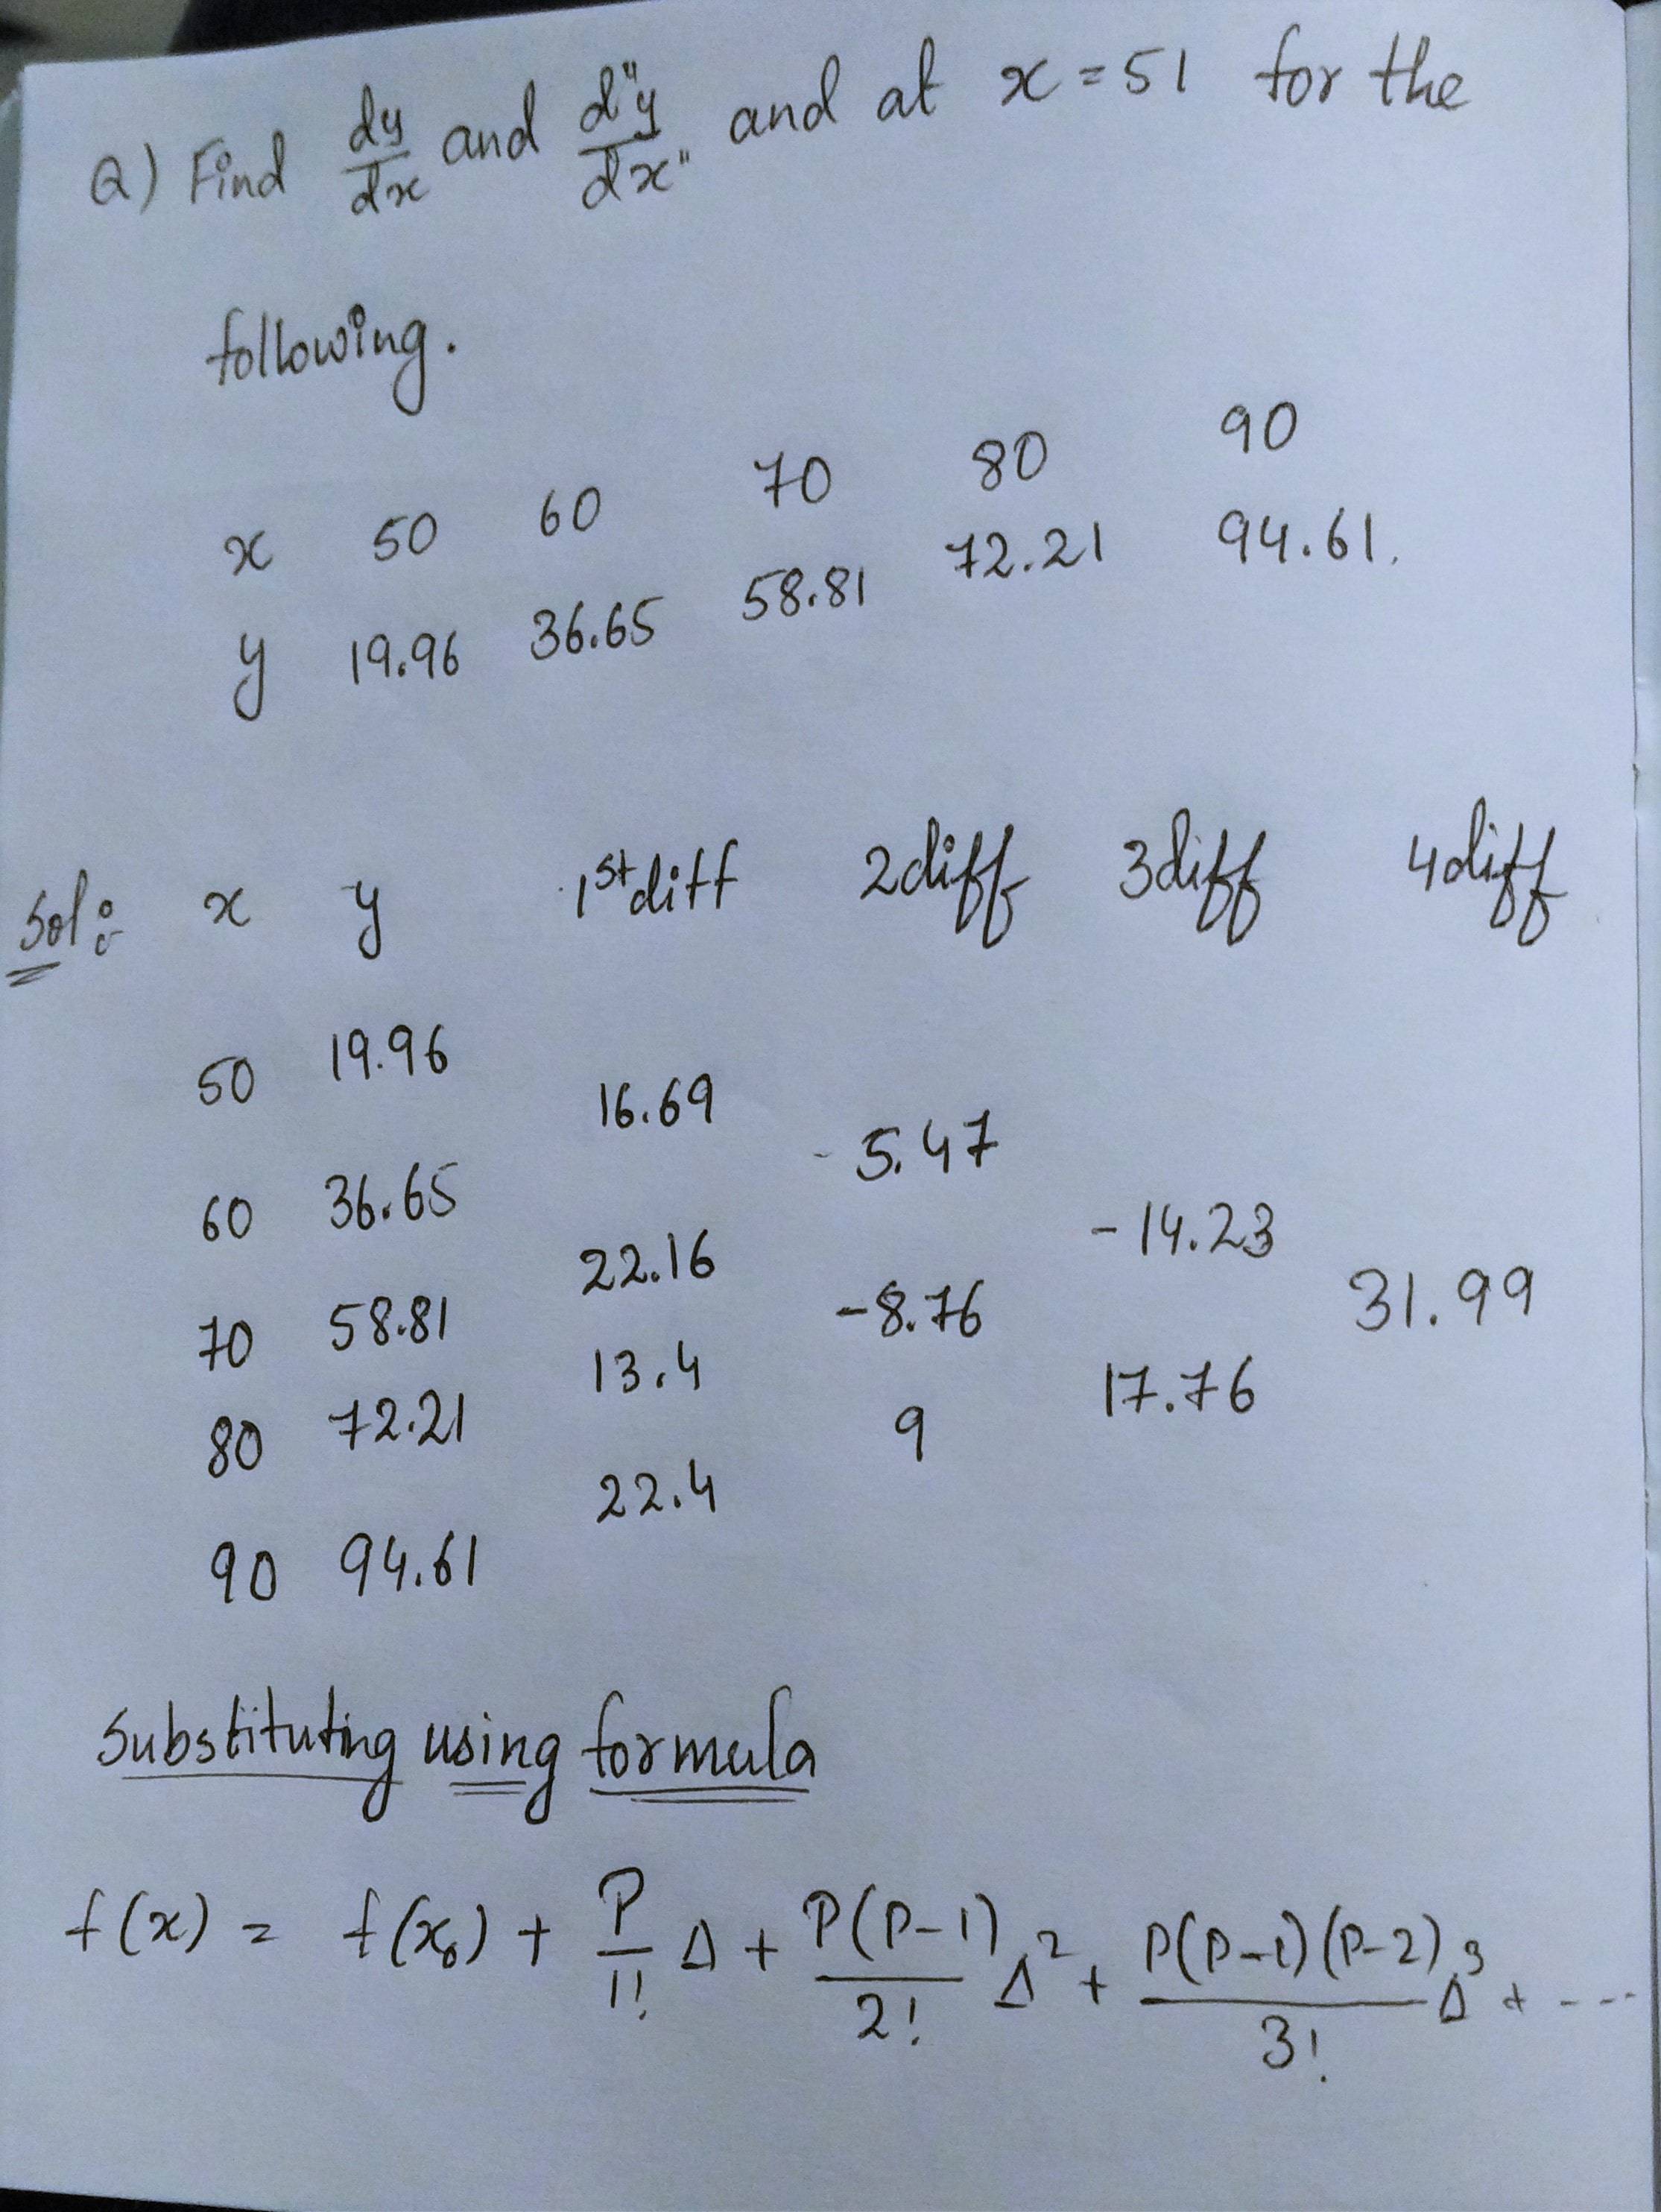 Q) Find dy/dx and d"y/dx" and at x = 51 for the
following.
x 50 60 70 80 90
y 19.96 36.65 58.81 72.21 94.61.
Sol:- x y 1st diff 2diff 3diff 4diff
50 19.96
16.69
- 5.47
60 36.65
-14.23
22.16
31.99
-8.76
70 58.81
13.4
17.76
80 72.21
9
22.4
90 94.61
Substituting using formula
f(x) = f(x₀) + P/1! Δ + P(P-1)/2! Δ² + P(P-1)(P-2)/3! Δ³ + ----